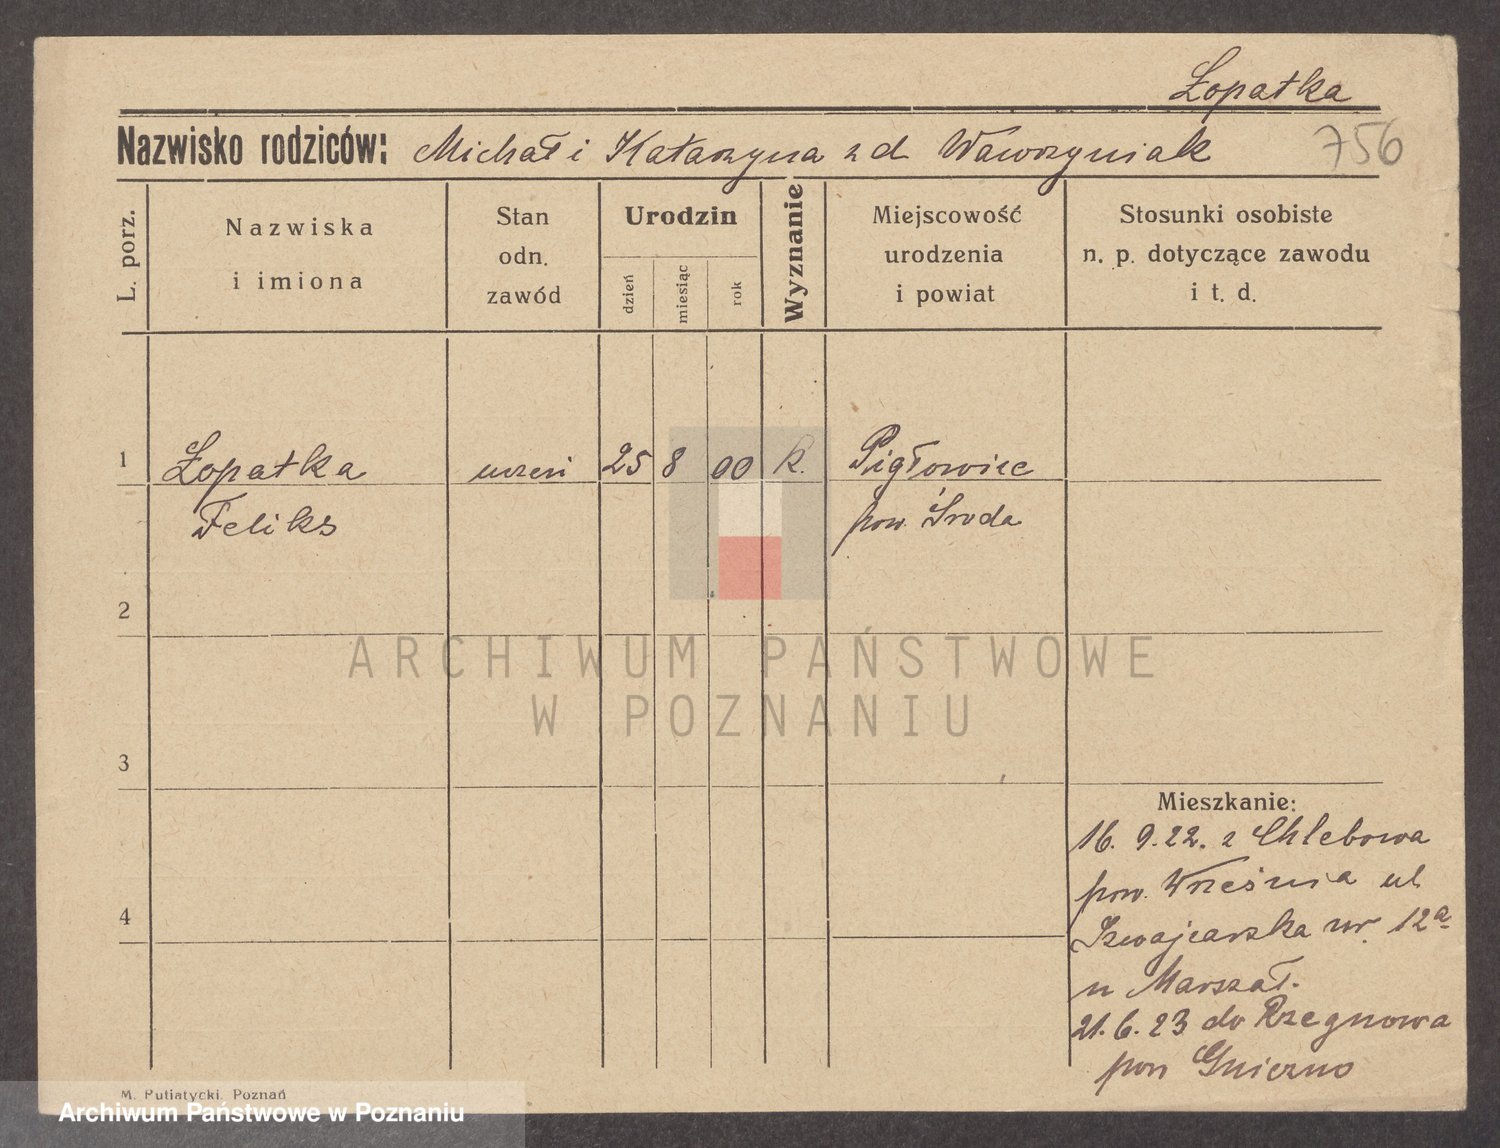 Łopatka
Nazwisko rodziców: Michał i Katarzyna z d Wawrzyniak 756
L. porz.
Nazwiska
i imiona
Stan
odn.
zawód
Urodzin
dzień
miesiąc
rok
Wyznanie
Miejscowość
urodzenia
i powiat
Stosunki osobiste
n. p. dotyczące zawodu
i t. d.
1 Łopatka uczeń 25 8 00 k. Pigłowice
Feliks pow. Środa
2
ARCHIWUM PAŃSTWOWE
W POZNANIU
3
Mieszkanie:
16. 9. 22. z Chlebowa
pow. Września ul
4
Szwajcarska nr. 12a
u Marszał.
21. 6. 23 do Rzegnowa
pow Gniezno
M. Putiatycki, Poznań
Archiwum Państwowe w Poznaniu